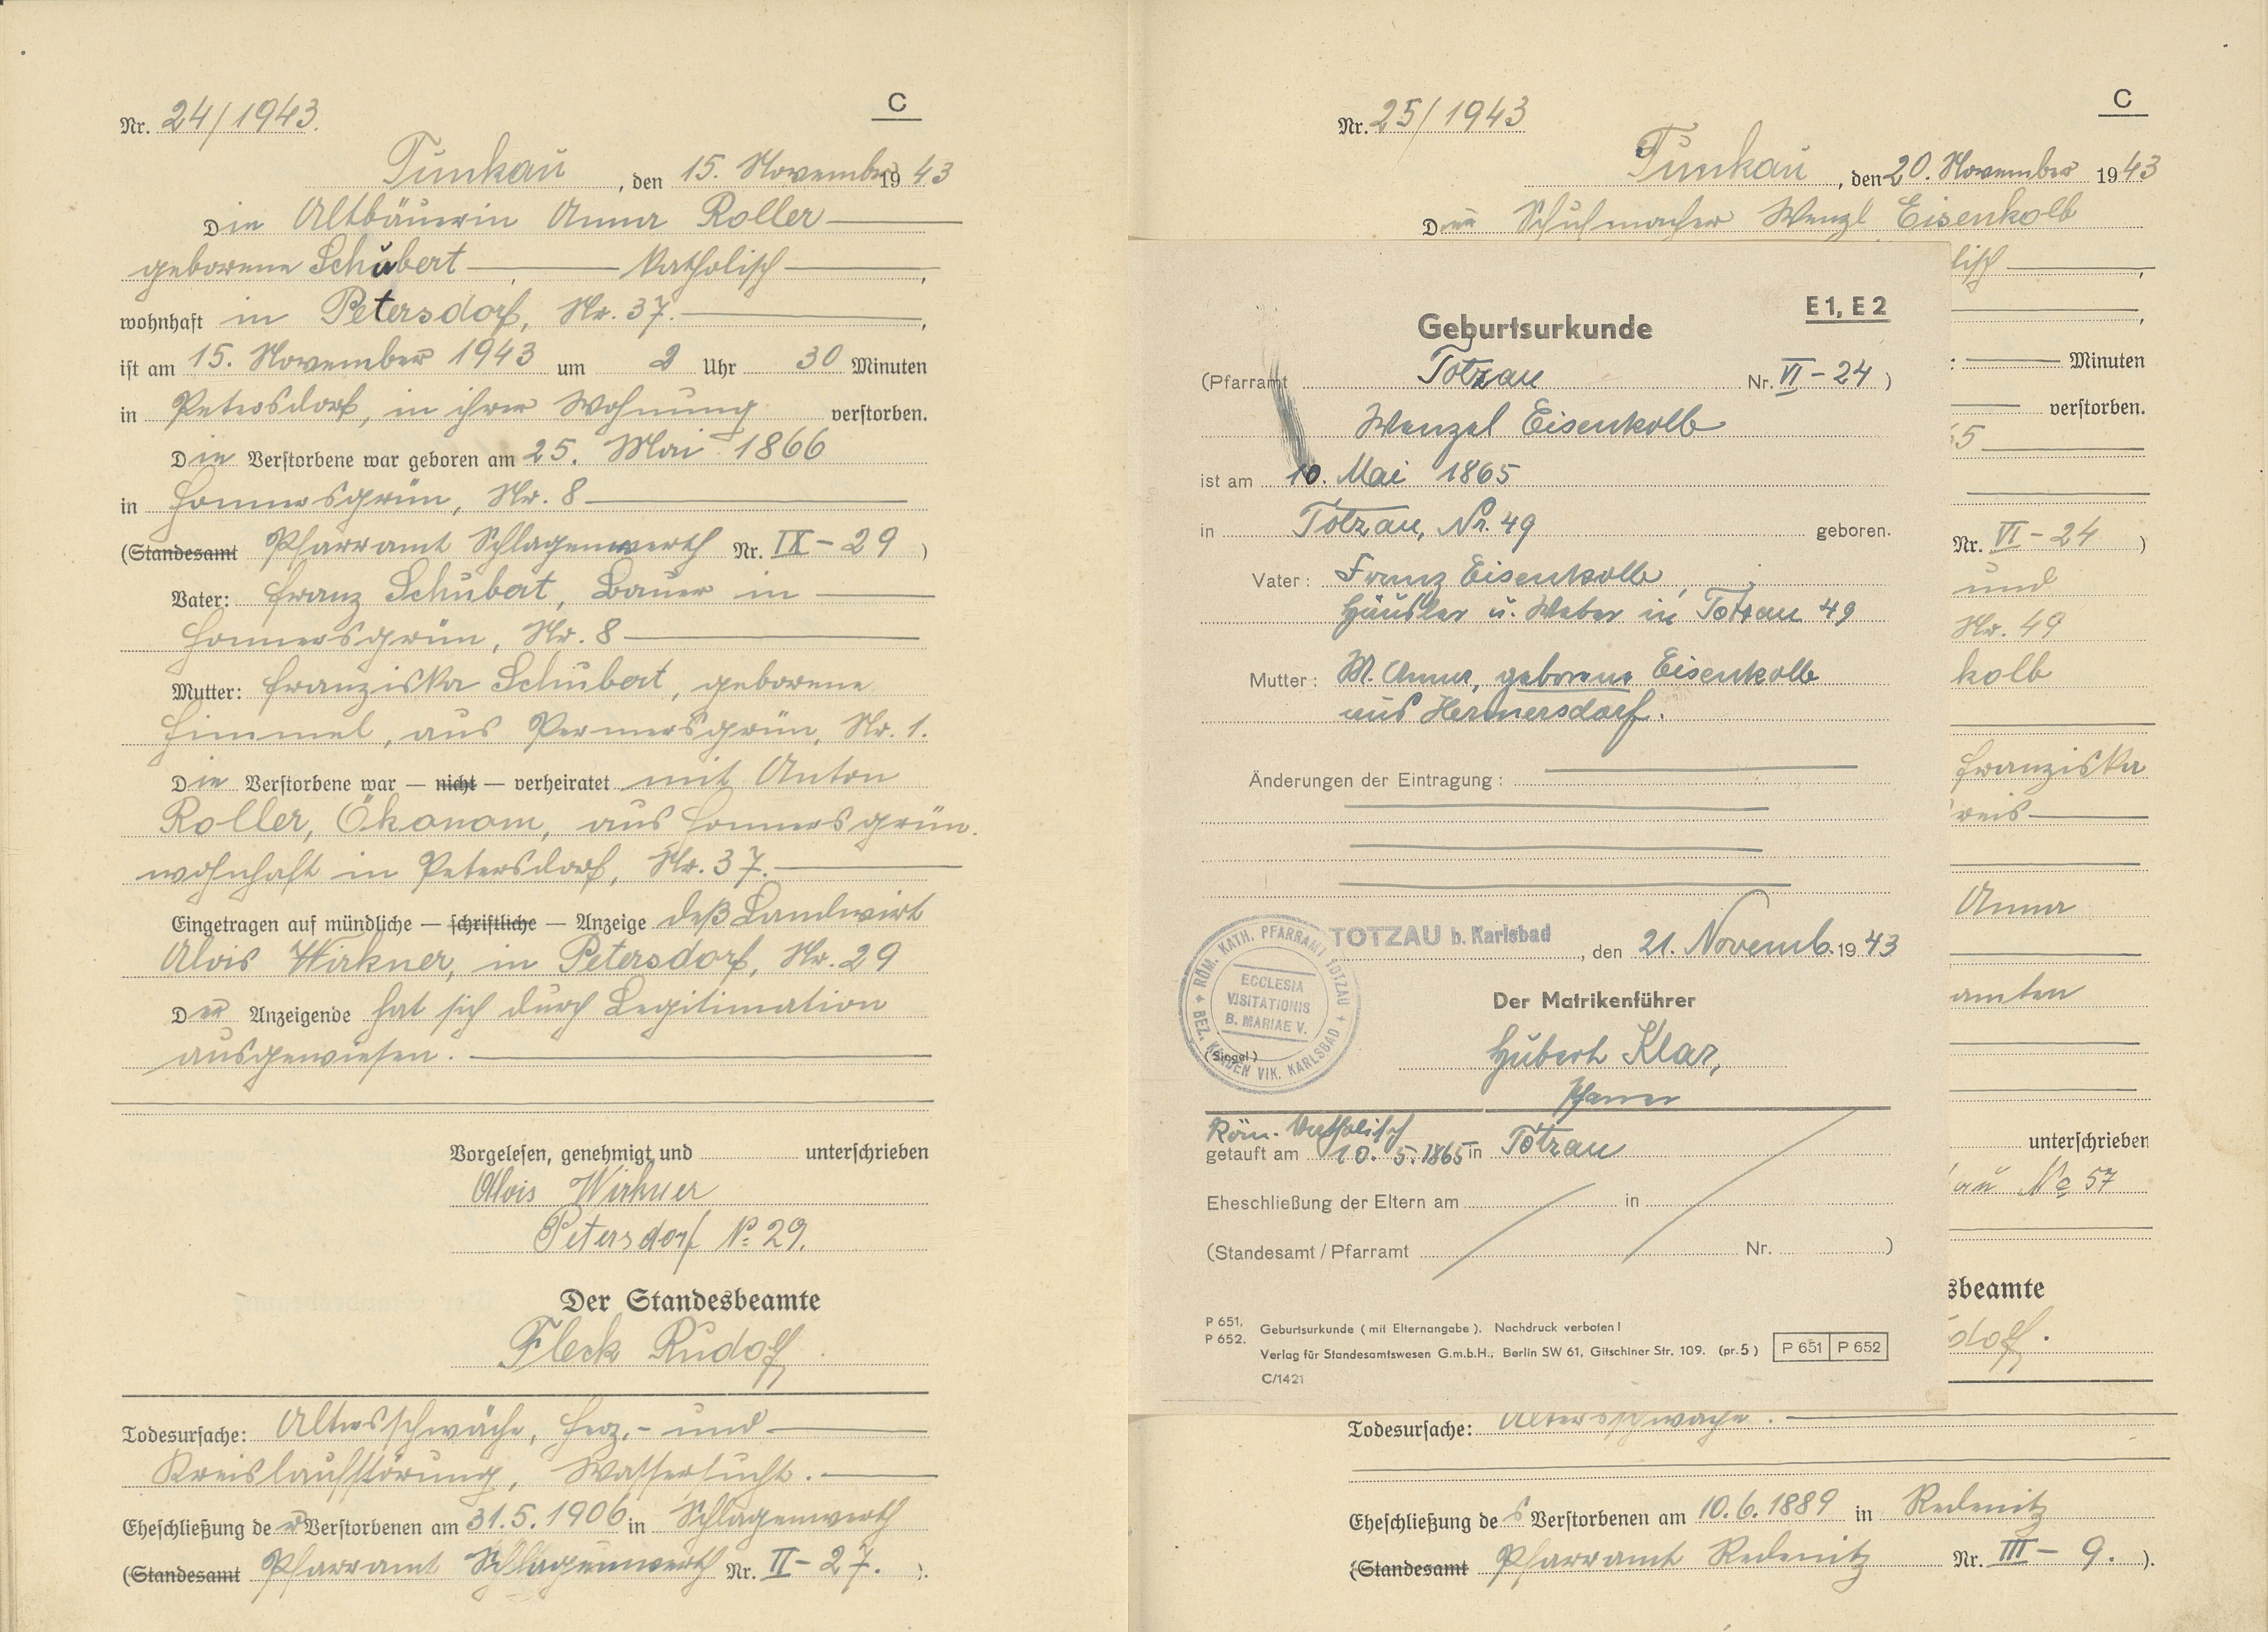 Nr. 24/1943.
C
Tunkau, den 15. November 1943
Die Altbäuerin Anna Roller
geborene Schubert katholisch,
wohnhaft in Petersdorf, Nr. 37.,
ist am 15. November 1943 um 2 Uhr 30 Minuten
in Petersdorf, in ihrer Wohnung verstorben.
Die Verstorbene war geboren am 25. Mai 1866
in Honnersgrün, Nr. 8
(Standesamt Pfarramt Schlagenwerth Nr. IX - 29 )
Vater: Franz Schubert, Bauer in
Honnersgrün, Nr. 8
Mutter: Franziska Schubert, geborene
Himmel, aus Permersgrün, Nr. 1.
Die Verstorbene war — nicht — verheiratet mit Anton
Roller, Ökonom, aus Honnersgrün.
wohnhaft in Petersdorf, Nr. 37.
Eingetragen auf mündliche — schriftliche — Anzeige deß Landwirt
Alois Wirkner, in Petersdorf, Nr. 29
Der Anzeigende hat sich durch Legitimation
ausgewiesen.
Vorgelesen, genehmigt und unterschrieben
Alois Wirkner
Petersdorf No 29.
Der Standesbeamte
Fleck Rudolf
Todesursache: Altersschwäche, Herz,- und
Kreislaufstörung, Wassersucht.
Eheschließung der Verstorbenen am 31.5.1906 in Schlagenwerth
(Standesamt Pfarramt Schlagenwerth Nr. II - 27. ).
Nr. 25/1943
C
Tunkau, den 20. November 1943
Der Schuhmacher Wenzl Eisenkolb
lisch,
,
: Minuten
verstorben.
65
Nr. VI - 24 )
und
Nr. 49
kolb
Franziska
reis
Anna
amten
unterschrieben
au No 57
sbeamte
dolf.
E 1, E 2
Geburtsurkunde
(Pfarramt Totzau Nr. VI - 24 )
Wenzel Eisenkolb
ist am 10. Mai 1865
in Totzau, Nr. 49 geboren.
Vater: Franz Eisenkolb,
Häusler u. Weber in Totzau 49
Mutter: M. Anna, geborene Eisenkolb
aus Hermersdorf.
Änderungen der Eintragung:
TOTZAU b. Karlsbad, den 21. Novemb. 1943
RÖM. KATH. PFARRAMT TOTZAU + BEZ. KAADEN VIK. KARLSBAD +
ECCLESIA
VISITATIONIS
B. MARIAE V.
(Siegel)
Der Matrikenführer
Hubert Klar,
Pfarrer
Röm. katholisch
getauft am 10. 5. 1865 in Totzau
Eheschließung der Eltern am in
(Standesamt / Pfarramt Nr. )
P 651.
P 652.
Geburtsurkunde (mit Elternangabe). Nachdruck verboten!
Verlag für Standesamtswesen G.m.b.H., Berlin SW 61, Gitschiner Str. 109. (pr. 5)
P 651 P 652
C/1421
Todesursache: Altersschwäche.
Eheschließung des Verstorbenen am 10.6.1889 in Redenitz
(Standesamt Pfarramt Redenitz Nr. III - 9. ).